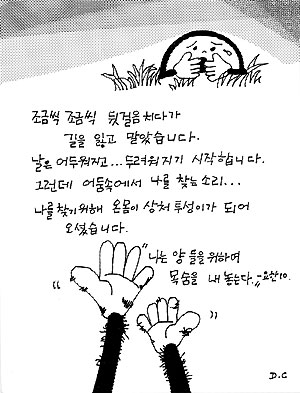 조금씩 조금씩 뒷걸음치다가
길을 잃고 말았습니다.
날은 어두워지고...두려워지기 시작합니다.
그런데 어둠속에서 나를 찾는 소리...
나를 찾기위해 온몸이 상처 투성이가 되어
오셨습니다.
"나는 양 들을 위하여
목숨을 내 놓는다."-요한10.
D.C